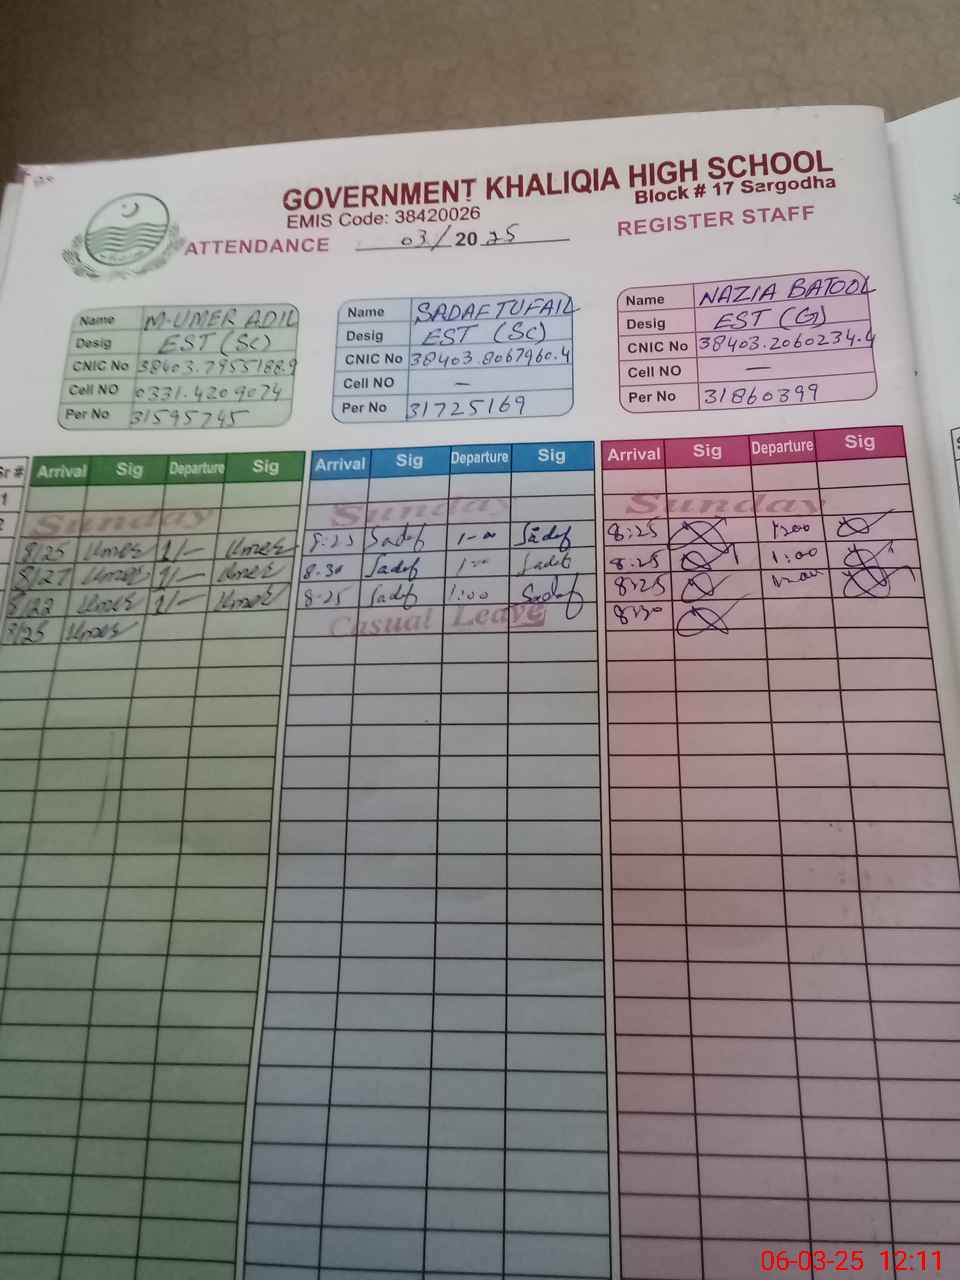 GOVERNMENT KHALIQIA HIGH SCHOOL
EMIS Code: 38420026 Block # 17 Sargodha
ATTENDANCE 03/2025 REGISTER STAFF
Name M-UMER ADIL
Desig EST (SC)
CNIC No 38403.7955188.9
Cell NO 0331.4209074
Per No 31595745
Name SADAF TUFAIL
Desig EST (SC)
CNIC No 38403.8067960.4
Cell NO —
Per No 31725169
Name NAZIA BATOOL
Desig EST (G)
CNIC No 38403.2060234.4
Cell NO —
Per No 31860399
Sr # Arrival Sig Departure Sig Arrival Sig Departure Sig Arrival Sig Departure Sig
1
2 Sunday Sunday Sunday
8/25 Umer 1/— Umer 8:25 Sadaf 1-00 Sadaf 8:25 1:00
8/27 Umer 1/— Umer 8.30 Sadaf Sadaf 8:25 1:00
8/22 Umer 1/— Umer 8-25 Sadaf 1:00 Sadaf 8:25
8/25 Umer Casual Leave 8:30
06-03-25 12:11